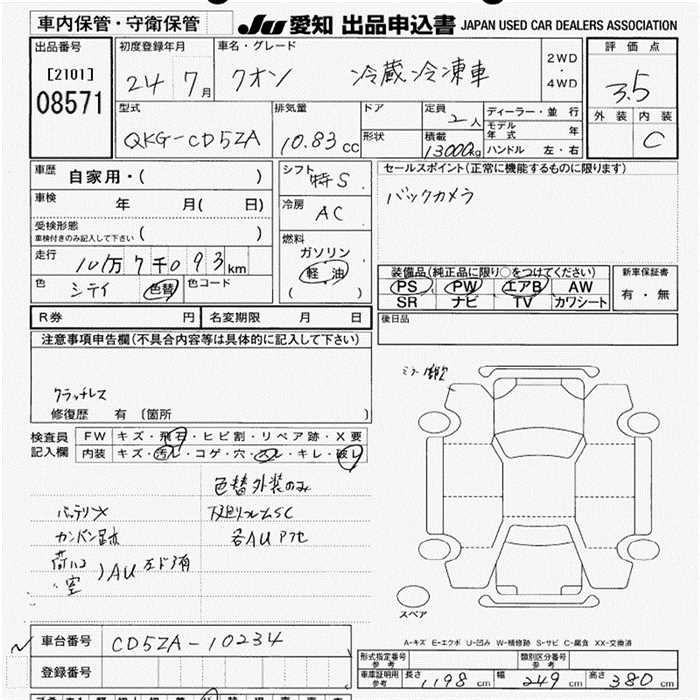 車内保管・守衛保管 JU 愛知 出品申込書 JAPAN USED CAR DEALERS ASSOCIATION
出品番号 初度登録年月 車名・グレード 2WD・4WD 評価点
[2101] 08571 24 7月 クオン 冷蔵冷凍車 3.5
型式 排気量 ドア 定員 ディーラー・並行 外装 内装
QKG-CD5ZA 10.83cc 形状 2人 モデル年式 年 C
積載 13000kg ハンドル 左・右
車歴 自家用・( ) シフト 特S セールスポイント(正常に機能するものに限ります)
車検 年 月( 日) 冷房 AC バックカメラ
受検形態 車検付きのみ記入して下さい ( )
走行 101万7千093km 燃料 ガソリン 軽油 ( )
色 シティ 色替 色コード 装備品(純正品に限り○をつけてください) 新車保証書
PS PW エアB AW 有・無
SR ナビ TV カワシート
R券 円 名変期限 月 日 後日品
注意事項申告欄(不具合内容等は具体的に記入して下さい)
クラッチレス
修復歴 有 [箇所 ]
検査員記入欄 FW キズ・飛石・ヒビ割・リペア跡・X要
内装 キズ・汚れ・コゲ・穴・スレ・キレ・破レ
色替外装のみ
バッテリX
カンバン跡 各AU
AU
スペア
A-キズ E-エクボ U-凹み W-補修跡 S-サビ C-腐食 XX-交換済
車台番号 CD5ZA-10234
登録番号
形式指定番号 参考 類別区分番号 参考
車庫証明用 参考 長さ 1198cm 幅 249cm 高さ 380cm